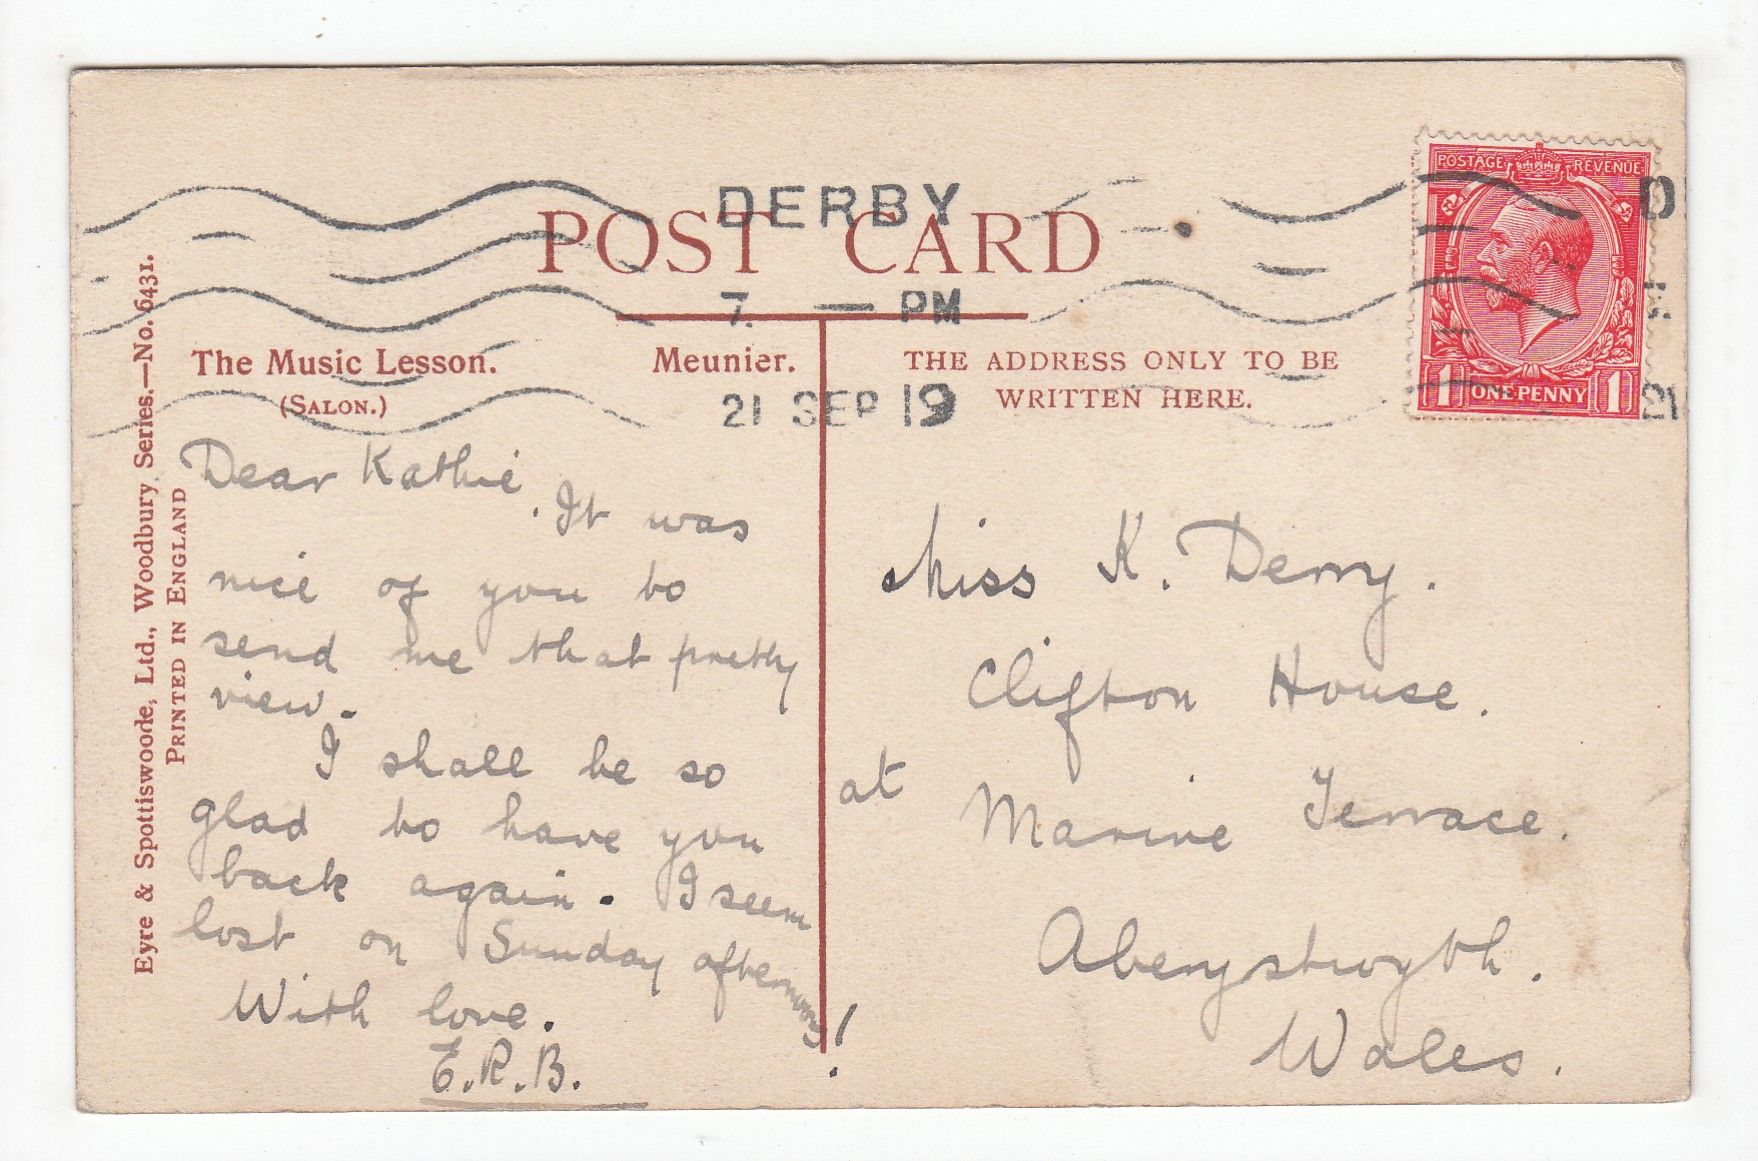 DERBY
POST CARD
7. — PM
21 SEP 19
POSTAGE REVENUE
1 ONE PENNY 1
The Music Lesson. Meunier.
(SALON.)
THE ADDRESS ONLY TO BE
WRITTEN HERE.
Eyre & Spottiswoode, Ltd., Woodbury Series.—No. 6431.
PRINTED IN ENGLAND
Dear Kathie
. It was
nice of you to
send me that pretty
view.
I shall be so
glad to have you
back again. I seem
lost on Sunday afternoons!
With love.
E.R.B.
Miss K. Derry.
Clifton House.
at Marine Terrace.
Aberystwyth.
Wales.